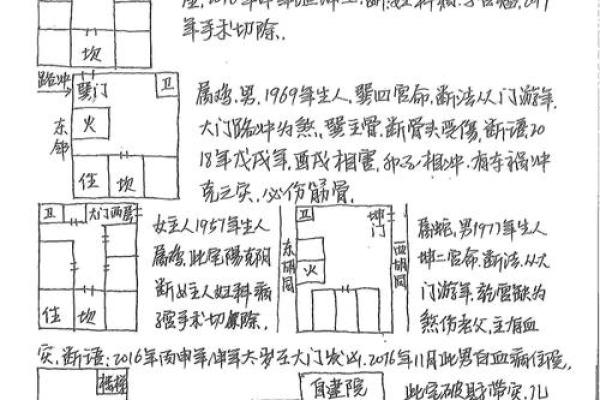 年手术切除.
坎
路冲
巽门
卫
东邻
火
住
坎
属鸡,男,1969年生人,巽四宫命,断法从门游年,
大门路冲为煞,巽主骨,断骨头受伤,断语20
18年戊戌年,酉戌相害,卯酉相冲,有车祸冲
克之实,必伤筋骨.
卫
大门西厕
住
坎
女主人1957年生人
属鸡,此宅阳克阴
断女主人妇科病
需手术切除.
卫
坤门
火
东胡同
西胡同
属蛇,男1977年生人
坤二宫命,断法,从大
门游年,乾宫缺为
煞伤老父,主有血
实,断语:2016年丙申年,申年太岁在大门发凶.2016年11月此男白血病住院,
楼梯
自建院
此宅破财带灾,儿